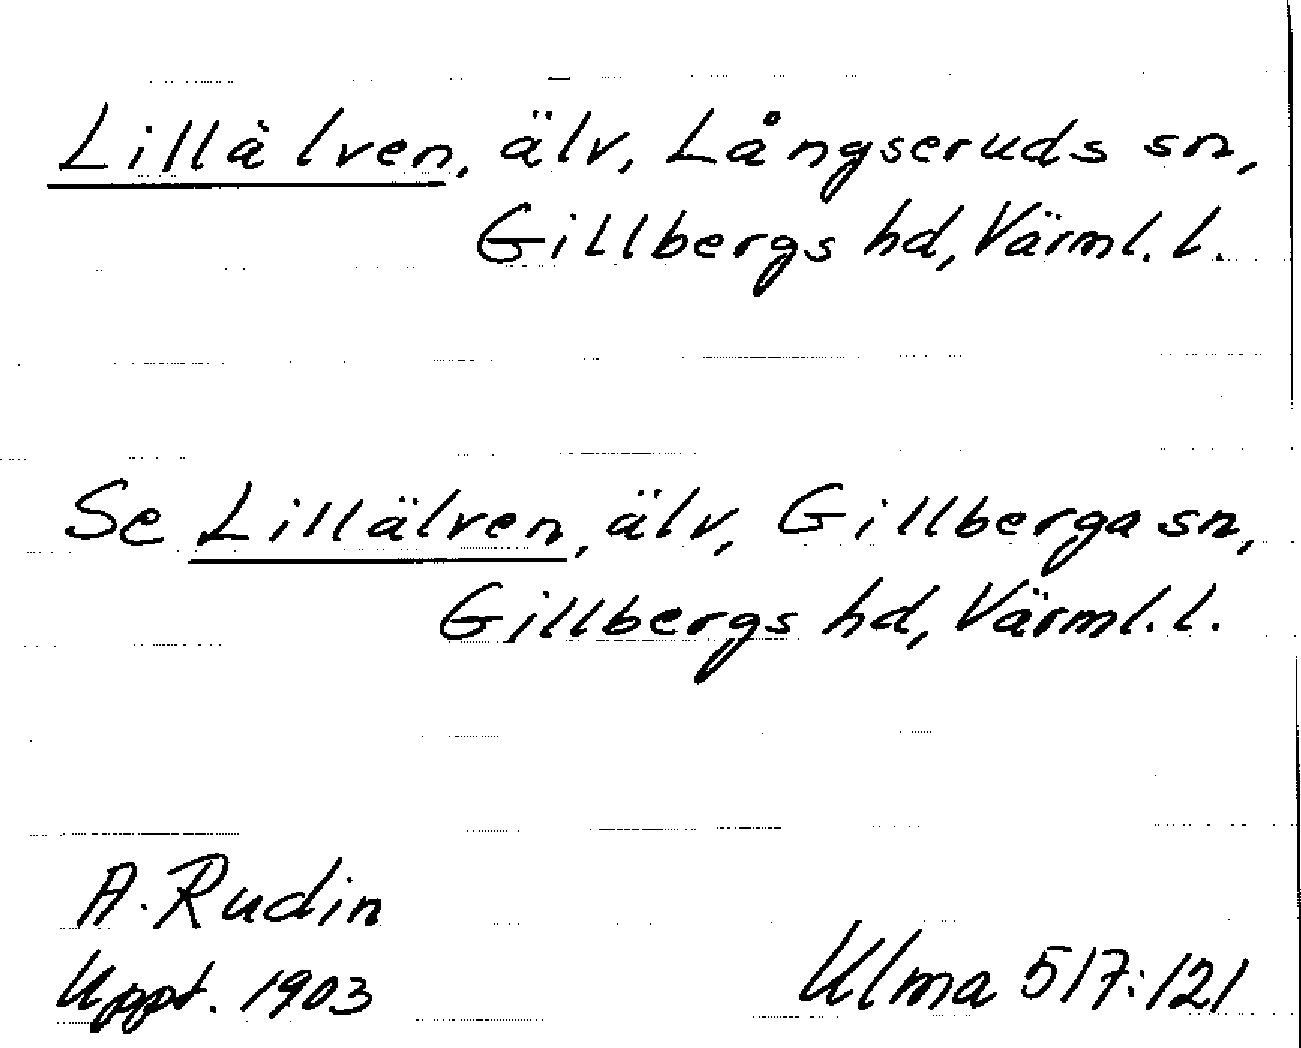 Lillälven, älv, Långseruds sn,
Gillbergs hd, Värml. l.
Se Lillälven, älv, Gillberga sn,
Gillbergs hd, Värml. l.
A. Rudin
Uppt. 1903
Ulma 517:121